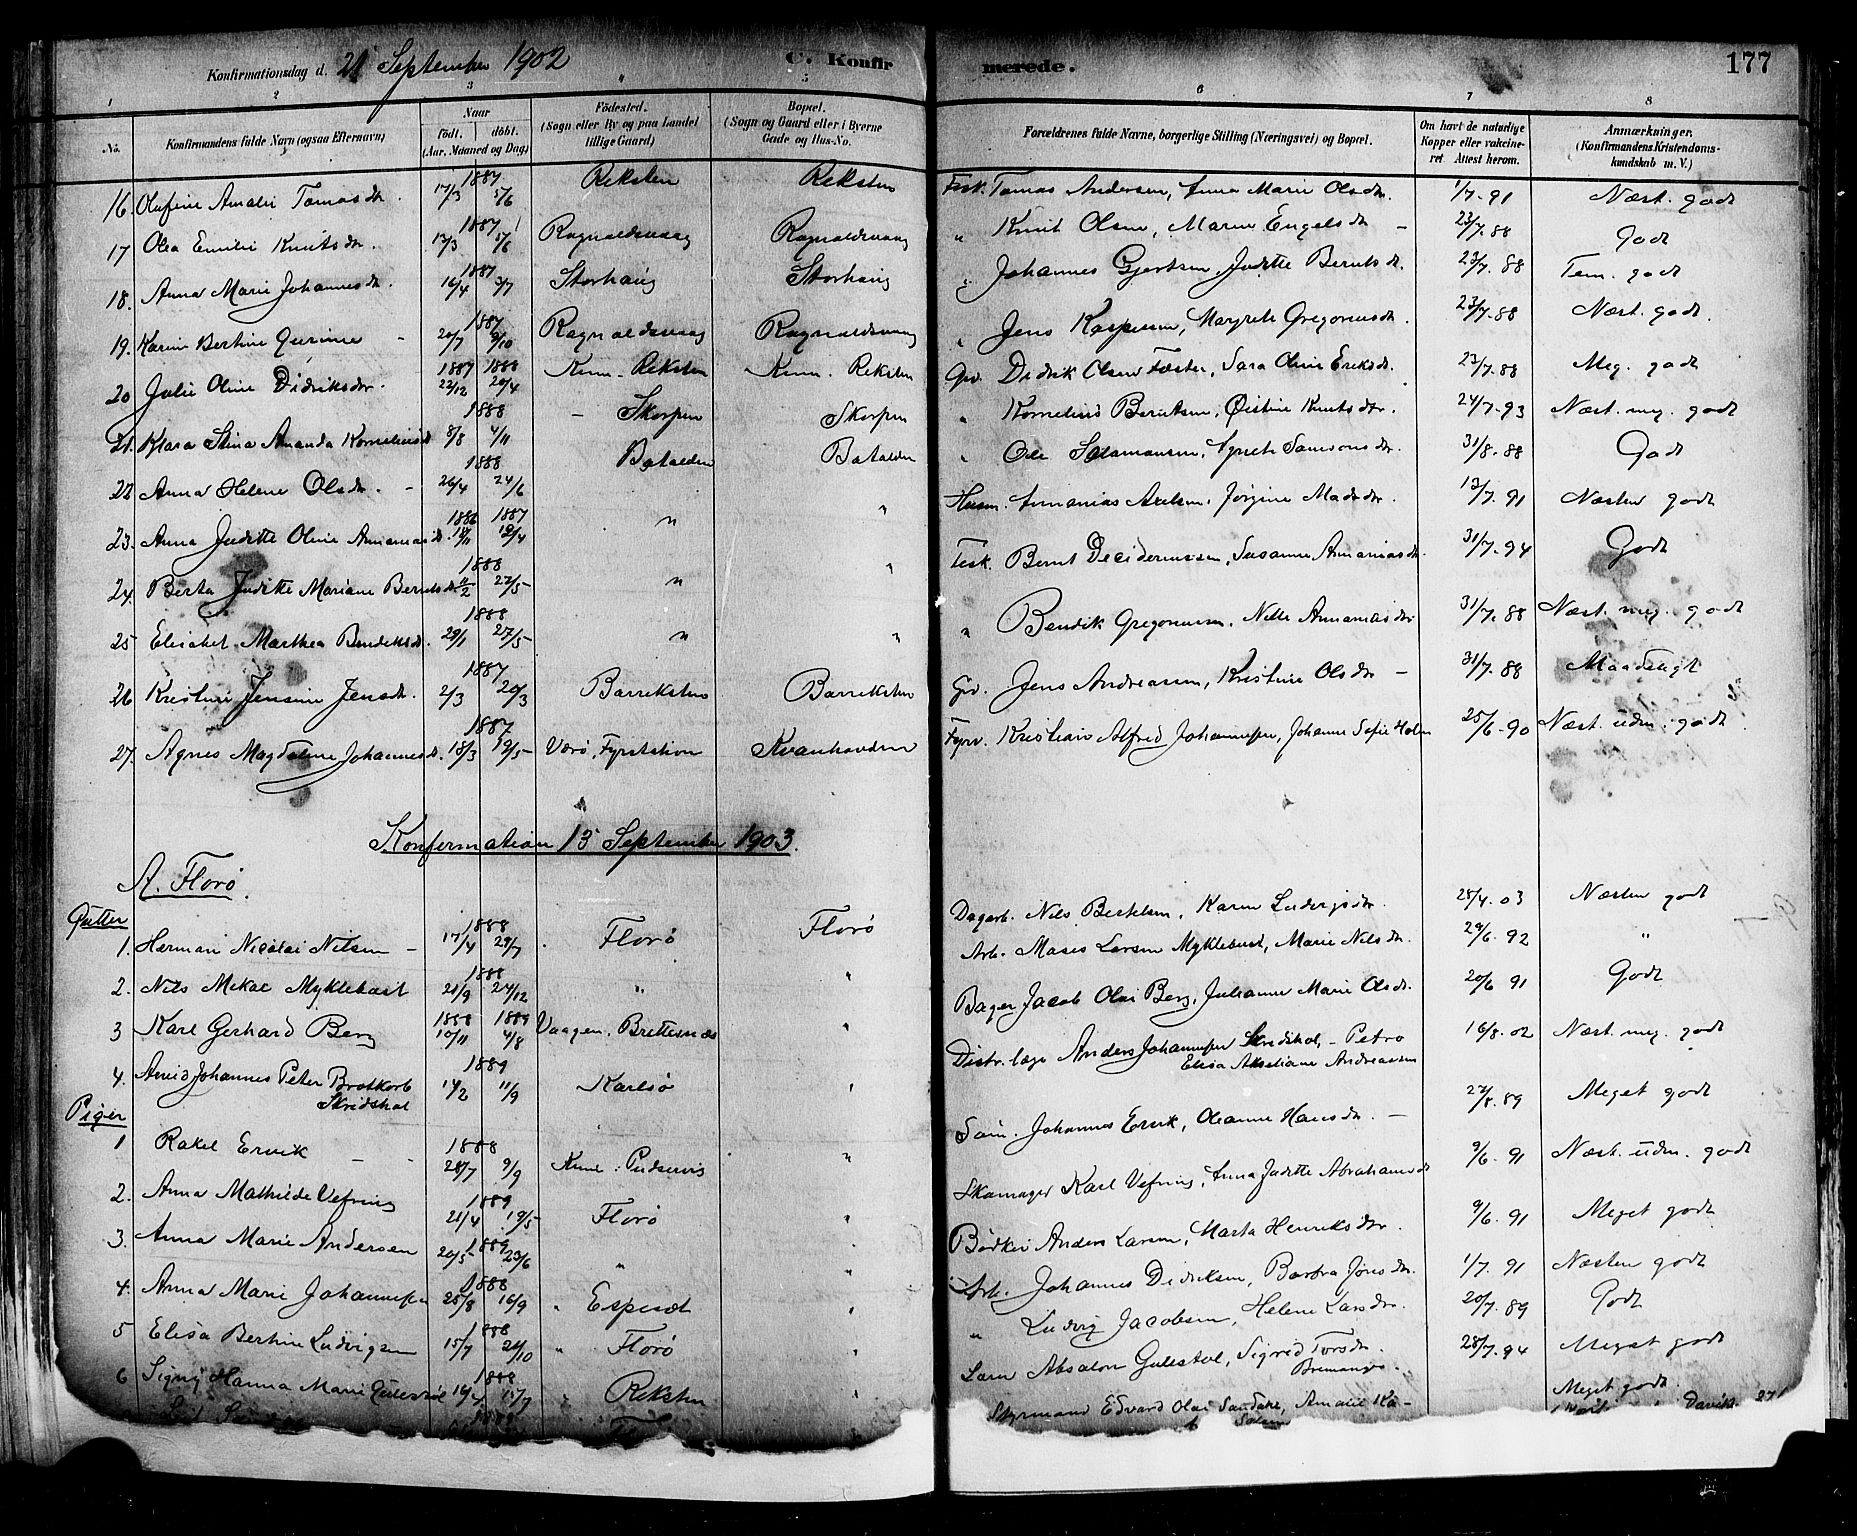 Konfirmationsdag d. 21 September 1902 C. Konfirmerede. 177
1 2 3 4 5 6 7 8
No. Konfirmandens fulde Navn (ogsaa Efternavn) Naar födt. döbt. (Aar, Maaned og Dag) Födested. (Sogn eller By og paa Landet tillige Gaard) Bopæl. (Sogn og Gaard eller i Byerne Gade og Hus-No. Forældrenes fulde Navne, borgerlige Stilling (Næringsvei) og Bopæl. Om havt de naturlige Kopper eller vakcineret. Attest herom. Anmærkninger. (Konfirmandens Kristendomskundskab m. V.)
16 Olufine Amalie Tomasdr. 17/3 1887 5/6 Reksten Reksten Fisk. Tomas Andersen, Anna Marie Olsdr. 1/7.91 Næst. godt
17 Olea Emilie Knutsdr. 13/3 1887 5/6 Rognaldsvaag Rognaldsvaag " Knut Olsen, Maren Engelsdr 23/7.88 Godt
18. Anna Marie Johannesdr. 16/4 1887 3/7 Storhaug Storhaug " Johannes Gjertsen, Juditte Berntsdr. 23/7.88 Tem. godt
19. Karen Bertine Jensine - 20/7 1887 9/10 Rognaldsvaag Rognaldsvaag " Jens Kaspersen, Margrete Gregoriusdr. 23/7.88 Næst. godt.
20 Julie Oline Didriksdr. 1887 22/12 1888 20/4 Kinn - Reksten Kinn. Reksten Gbr. Didrik Olsen Fæster, Sara Oline Eriksdr. 23/7.88 Meg. godt
21. Klara Stina Amanda Korneliusd. 8/8 1888 4/11 - Skorpen Skorpen " Kornelius Berntsen, Øistine Knutsdr. 24/7.93 Næst. meg. godt
22 Anna Helene Olsdr. - 26/4 1888 24/6 Batalden Batalden " Ole Salamonsen, Agnete Samsonsdr. 31/8.88 Godt
23. Anna Juditte Oline Ananiasd. 1886 18/11 1887 12/4 " " Husm. Ananias Axelsen, Jørgine Madsdr. 13/7.91 Næsten godt
24. Berta Juditte Mariane Berntsdr. 11/2 1888 27/5 " " Fisk. Bernt Desideriussen, Susanne Ananiasdr. 31/7.94 Godt
25 Elisabet Marthea Bendiksdr. 29/1 1888 27/5 " " " Bendik Gregoriussen, Nille Ananiasdr 31/7.88 Næst. meg. godt
26 Kristine Jensine Jensdr. 2/3 1887 20/3 Barreksten Barreksten Gbr. Jens Andreassen, Kristine Olsdr - 31/7.88 Maadeligt
27. Agnes Magdalene Johannesdr. 18/3 1887 19/5 Værø, Fyrstation Kvanhovden Fyrv. Kristian Alfred Johannessen, Johanne Sofie Holm 25/6.90 Næst. udm. godt
Konfirmation 13 September 1903.
A. Florø.
Gutter
1. Herman Nicolai Nilsen - 17/4 1888 29/7 Florø Florø Dagarb. Nils Bertelsen, Karen Ludvigsdr. 28/4.03 Næsten godt
2. Nils Mekal Myklebust 21/9 1888 24/12 " " Arb. Moses Larsen Myklebust, Marie Nilsdr. 29/6.92 "
3 Karl Gerhard Berg 1888 10/11 1889 4/8 Vaagen. Brettesnæs " Bager Jacob Olai Berg, Julianne Marie Olsdr. 20/6 91 Godt
4. Arvid Johannes Peter Brotkorb Skridshol 14/2 1889 11/9 Karlsø " Distr. læge Anders Johannesen Skridshol, - Petro Elisa Akseliane Andreassen 16/8.02 Næst. meg. godt
Piger
1 Rakel Ervik - - 28/7 1888 9/9 Kinn. Indrevig " Sam. Johannes Ervik, Oleanne Hansdr. - 27/8.89 Meget godt
2. Anna Mathilde Vefring 21/4 1889 19/5 Florø " Skomager Karl Vefring, Anna Juditte Abrahamsdr 9/6.91 Næst. udm. godt
3. Anna Marie Andersen 20/5 1889 23/6 " " Bødker Anders Larsen, Marta Henriksdr. 9/6.91 Meget godt
4. Anna Marie Johannesen 25/8 1888 16/9 " Espesæt " Arb. Johannes Didriksen, Barbra Jonsdr. 1/7.91 Næsten godt
5 Elisa Bertine Ludvigsen 15/7 1888 21/10 " Florø " " Ludvig Jacobsen, Helene Larsdr. 20/7.89 Godt
6 Signy Hanna Marie Gulestøl 1888 15/7 " Reksten " Sam Absalon Gulestøl, Sigrid Torsdr. Bremanger. 28/7.94 Meget godt
Styrmand Edvard Olai Sandøke, Amalie Ka- Meget godt.
Davik. 27/